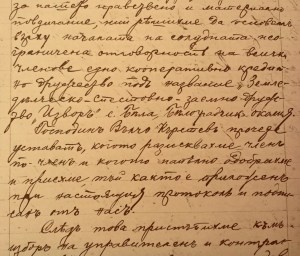 за нашето нравствено и материално
повдигание, ний решихме да основем
върху началата на солидната нео-
граничена отговорность на всички
членове едно кооперативно кредит-
но дружество подъ название: Земле-
делческо-спестовно заемно друже-
ство, "Изворъ" с. Бѣла, Бѣлоградч. околия.
Господинъ Вълчо Кръстевъ прочете
уставътъ, когото разисквахме членъ
по членъ и когото напълно одобрихме
и приехме, тъй както е приложенъ
при настоящия протоколъ и подпи-
санъ отъ насъ.
Слѣдъ това пристѫпихме къмъ
изборъ на управителенъ и контрол-